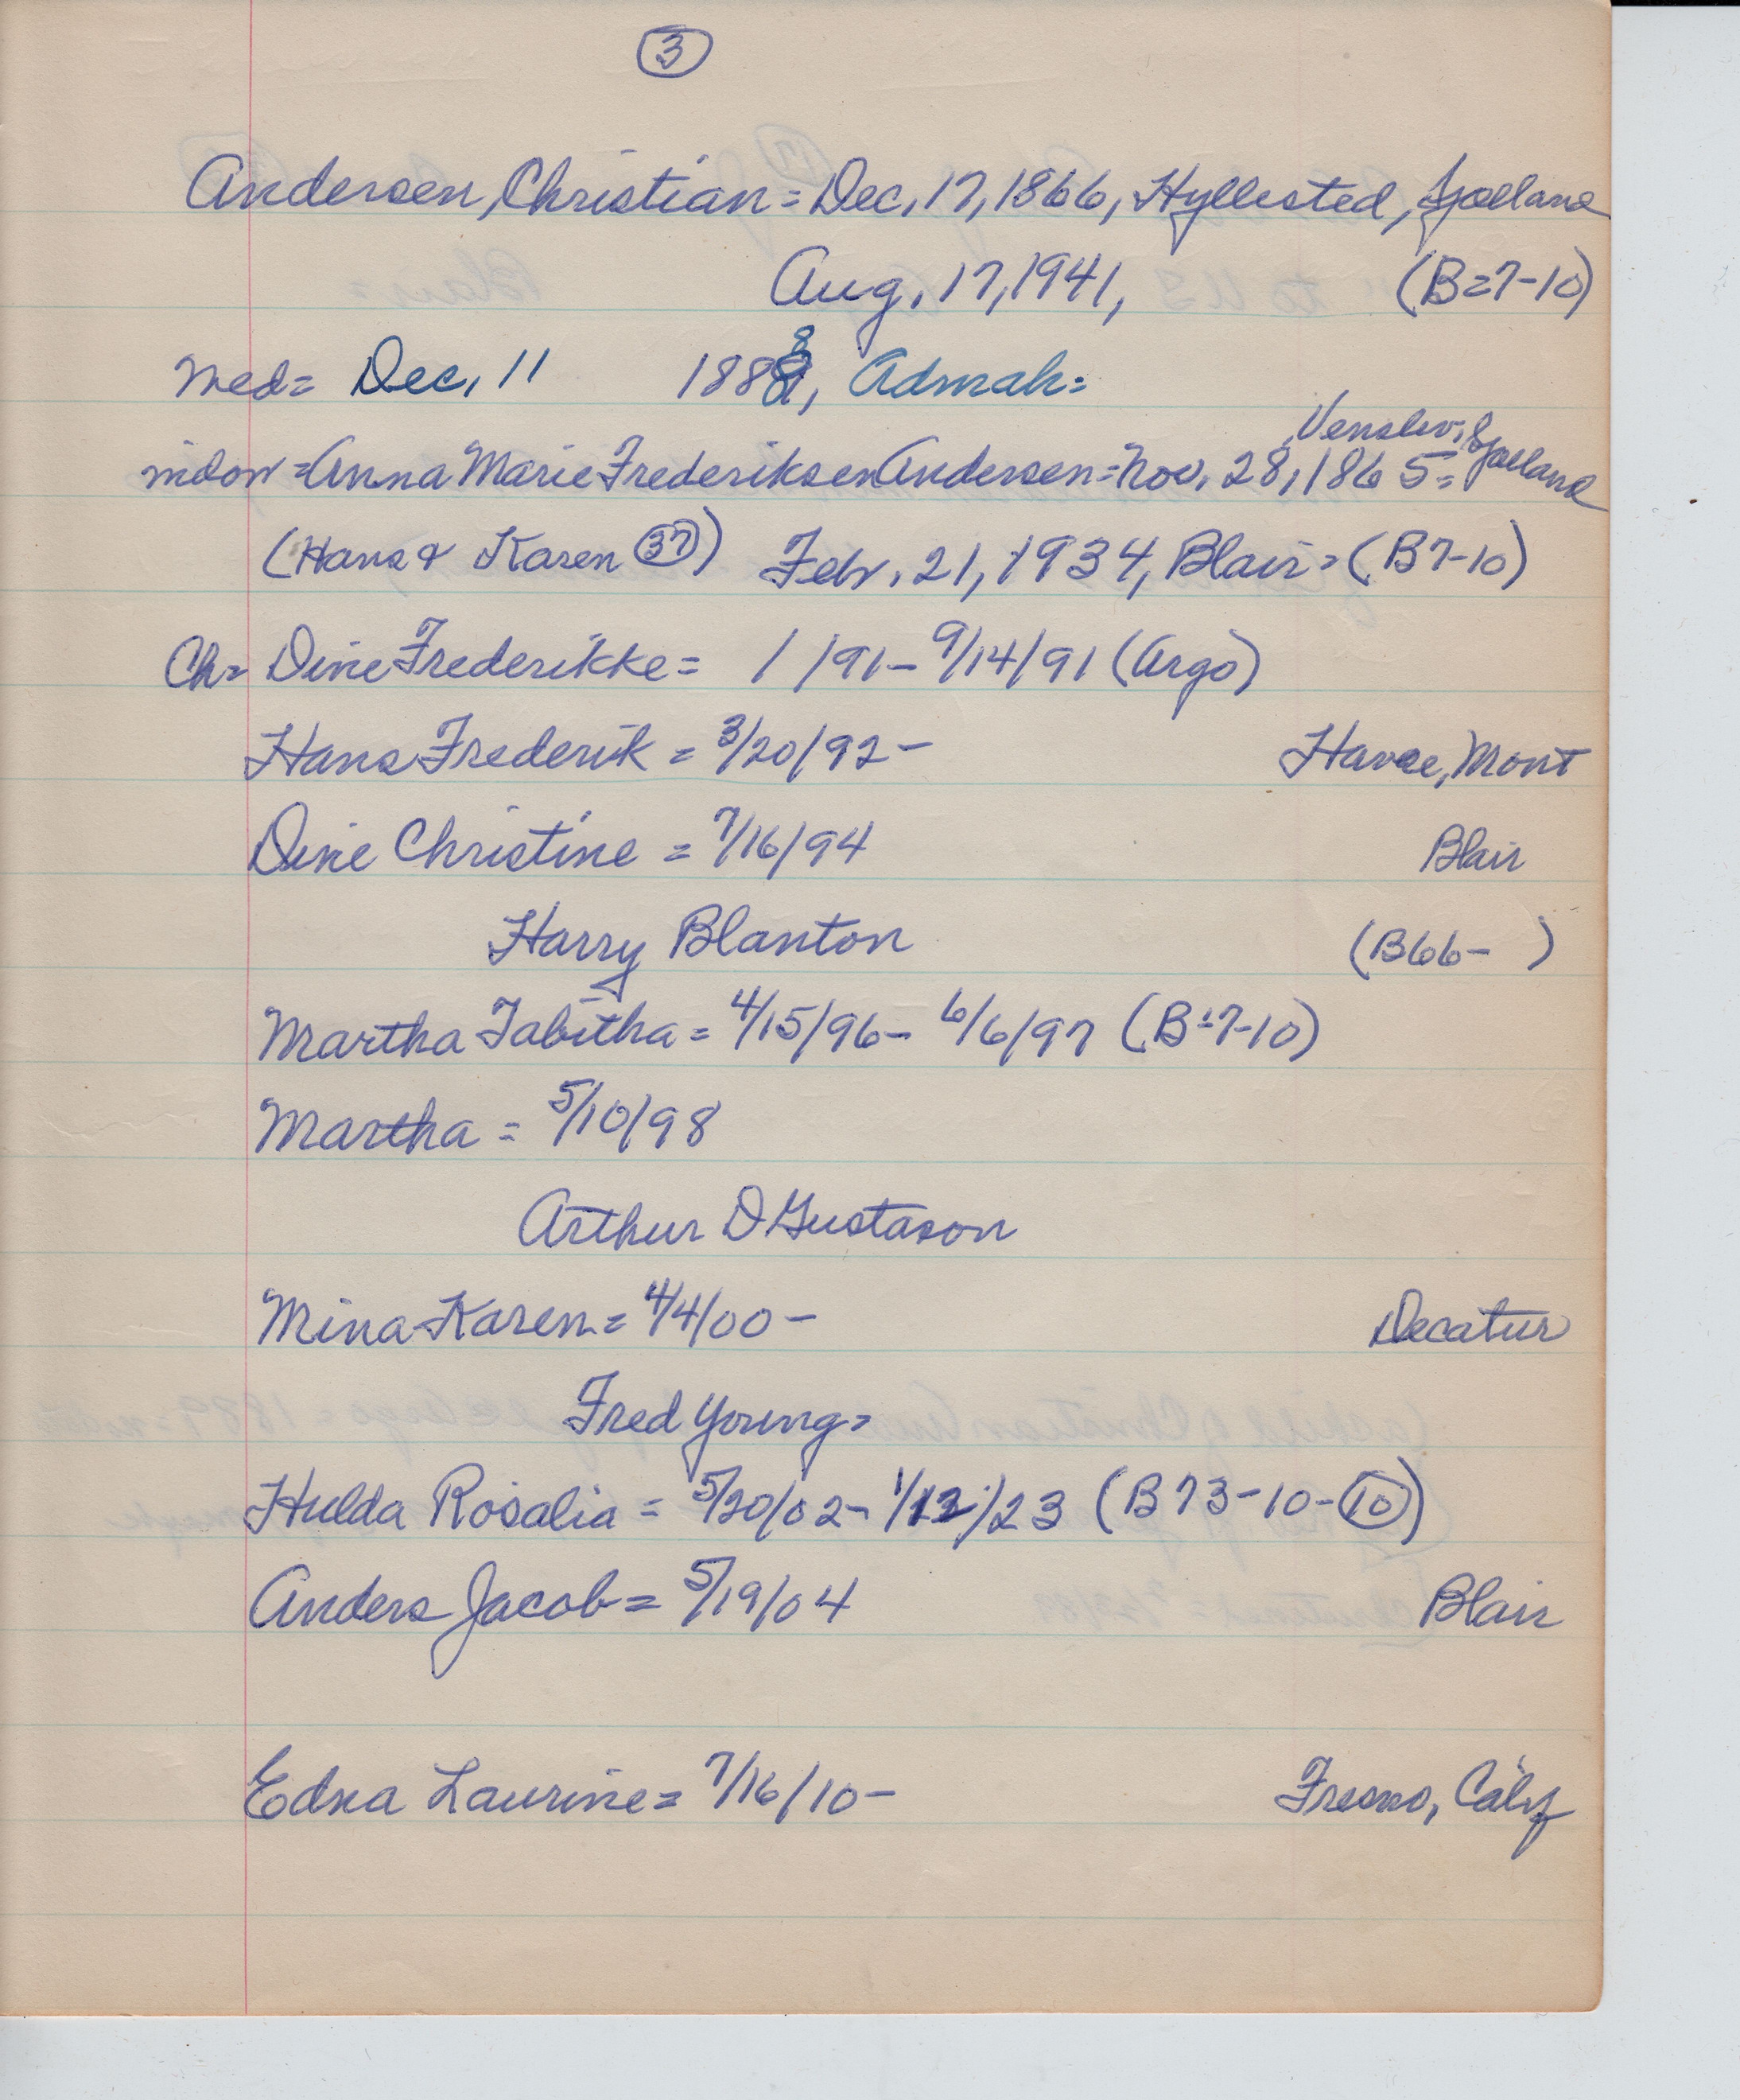 3
Andersen, Christian = Dec, 17, 1866, Hyllested, Sjælland
Aug, 17, 1941, (B=7-10)
Med= Dec, 11 1888, Admah=
Venslev, Sjælland
=Anna Marie Frederiksen Andersen = Nov, 28, 1865=
(Hans & Karen 37) Feb. 21, 1934, Blair = (B7-10)
Ch= Dine Frederikke = / /91 - 9/14/91 (Argo)
Hans Frederik = 3/20/92 - Havre, Mont
Dine Christine = 7/16/94 Blair
Harry Blanton (B66- )
Martha Tabitha = 4/15/96 - 6/6/97 (B=7-10)
Martha = 5/10/98
Arthur D Gustason
Mina Karen = 4/4/00 - Decatur
Fred Young =
Hulda Rosalia = 5/20/02 - 1/12/23 (B73-10-10)
Anders Jacob = 5/19/04 Blair
Edna Laurine = 7/16/10 - Fresno, Calif